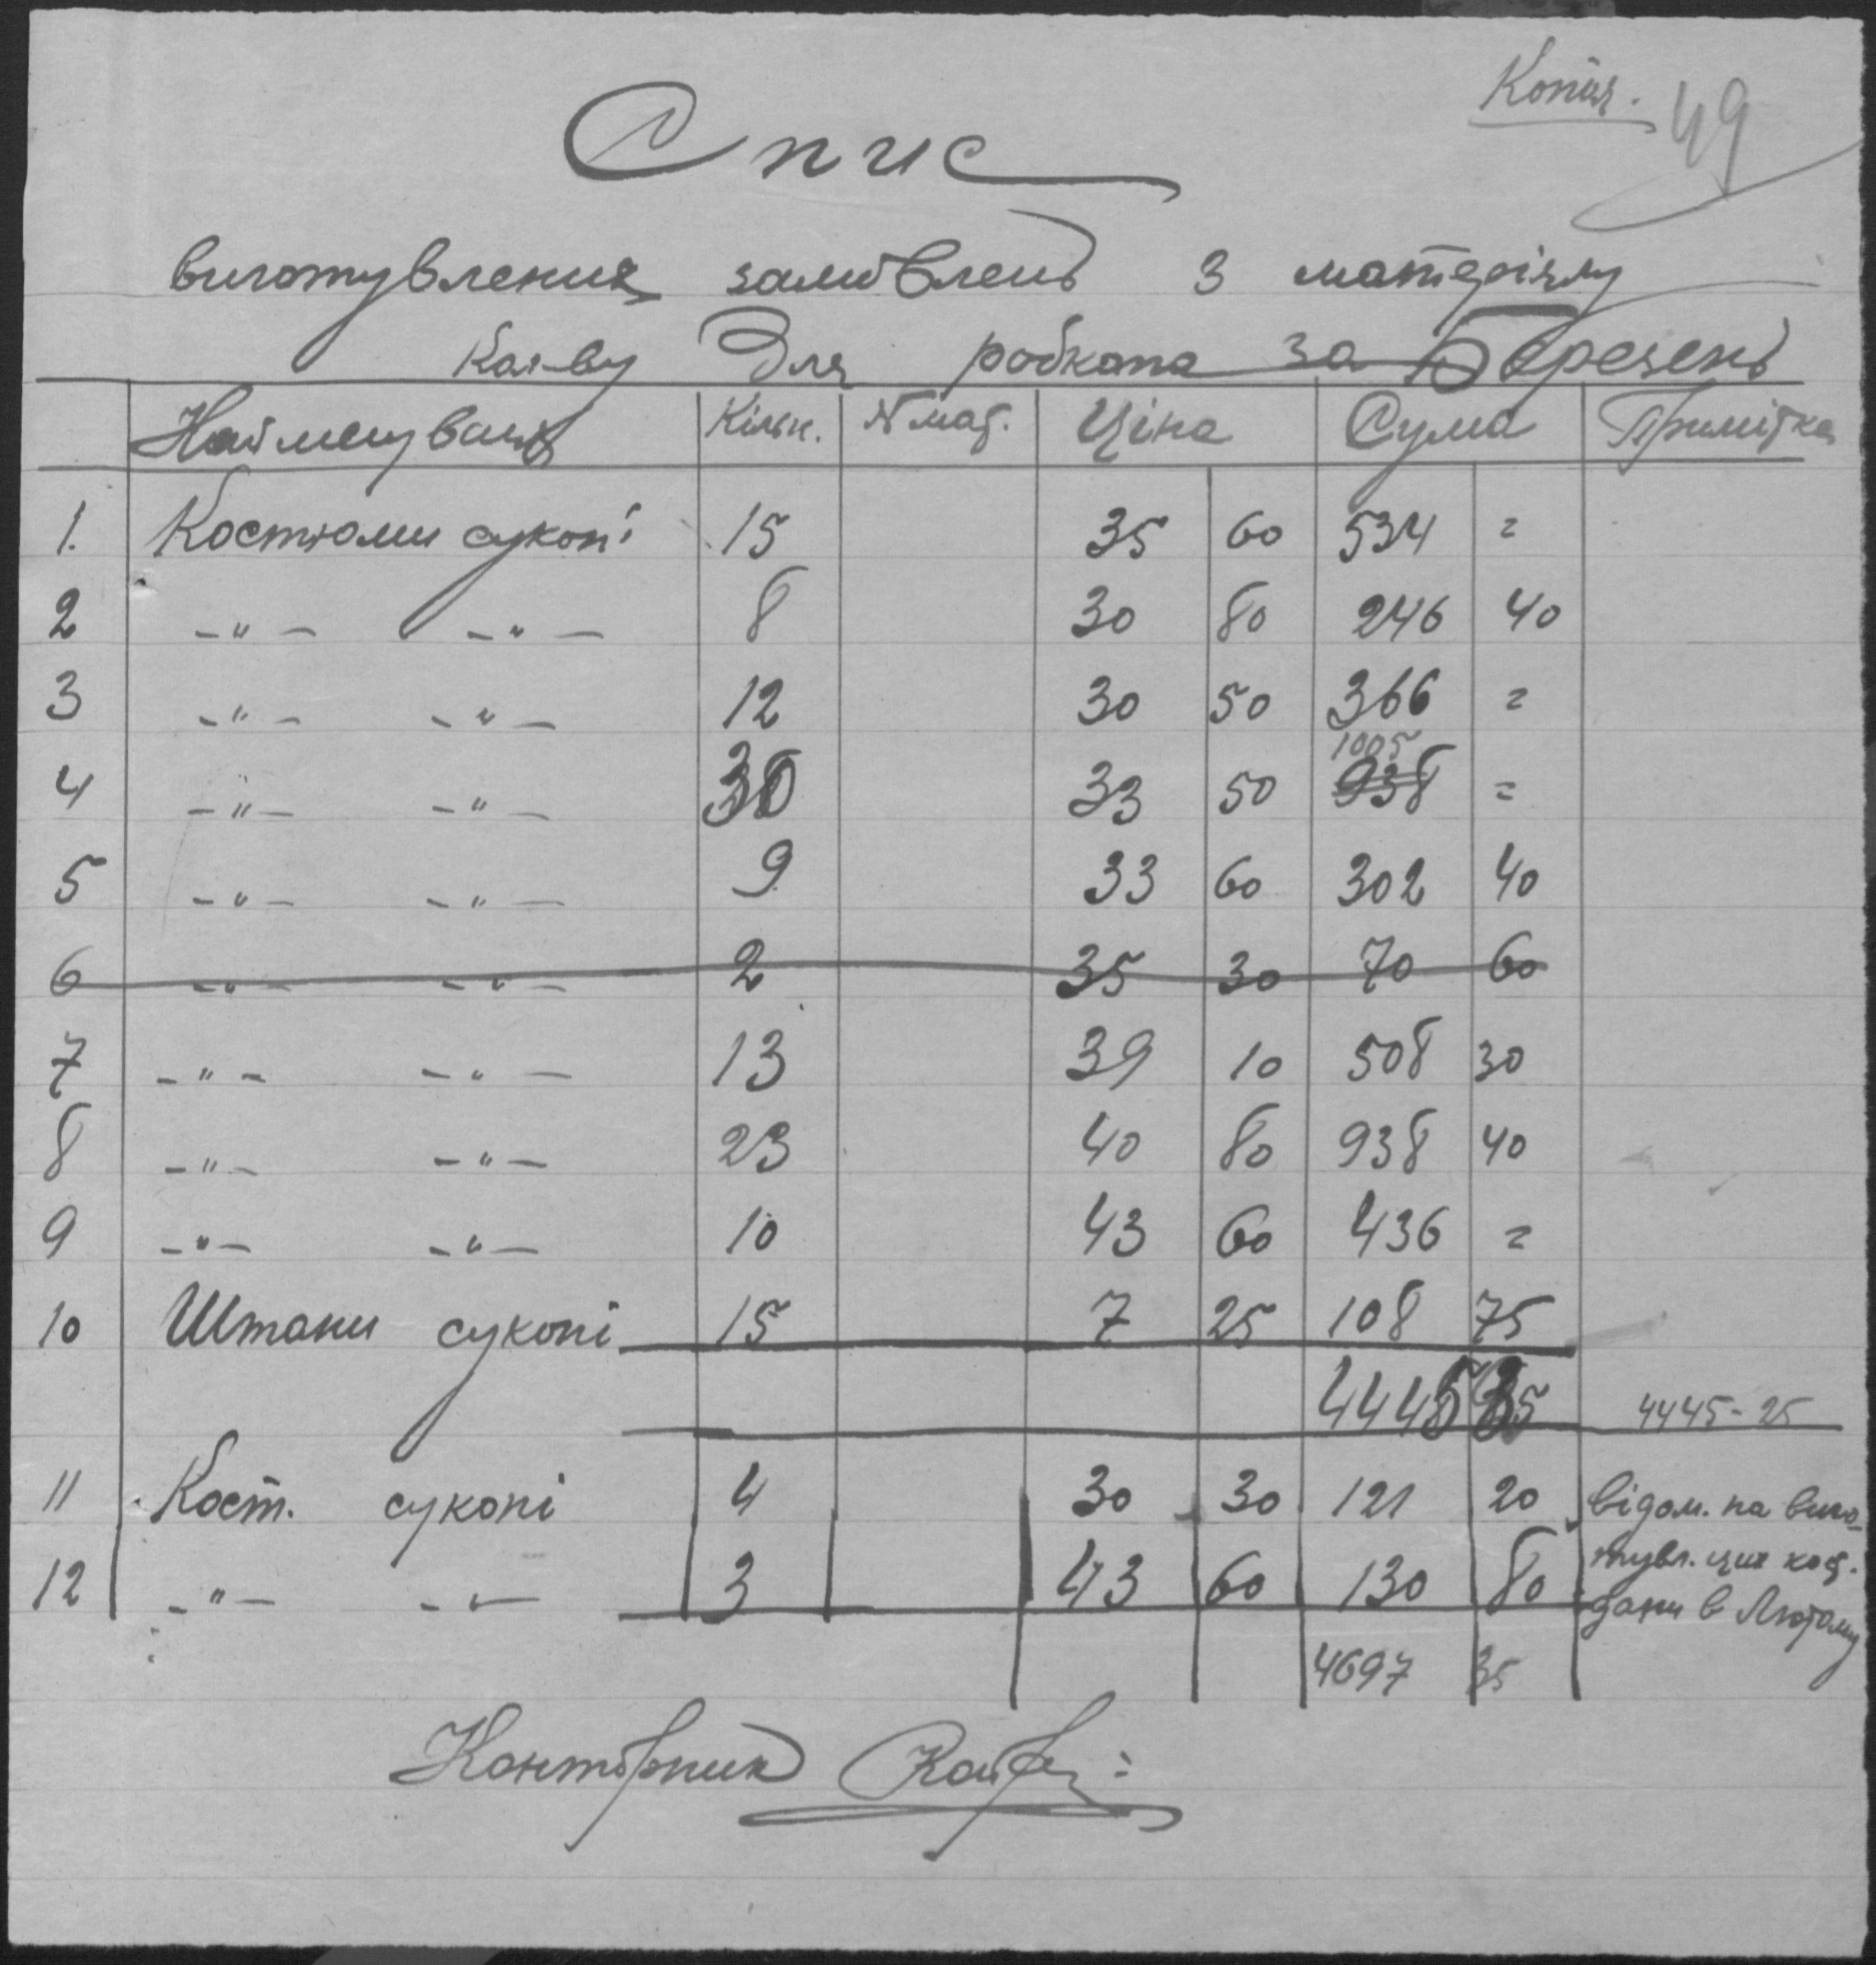 Копія. 49
Спис
виготувлення замовлень з матеріялу
для робкопа за Березень
Найменування Кільк. № мат. Ціна Сума Примітка
1. Костюми сукон і 15 35 60 534 =
2 -"- -"- 8 30 80 246 40
3 -"- -"- 12 30 50 366 =
1005
4 -"- -"- 30 33 50 938 =
5 -"- -"- 9 33 60 302 40
6 -"- -"- 2 35 30 70 60
7 -"- -"- 13 39 10 508 30
8 -"- -"- 23 40 80 938 40
9 -"- -"- 10 43 60 436 =
10 Штани суконі 15 7 25 108 75
4445 4445-25
11 Кост. суконі 4 30 30 121 20 відом. на виго-
12 -"- -"- 3 43 60 130 80 тувл. цих кост.
дани в Лютому
4697 35
Конторник